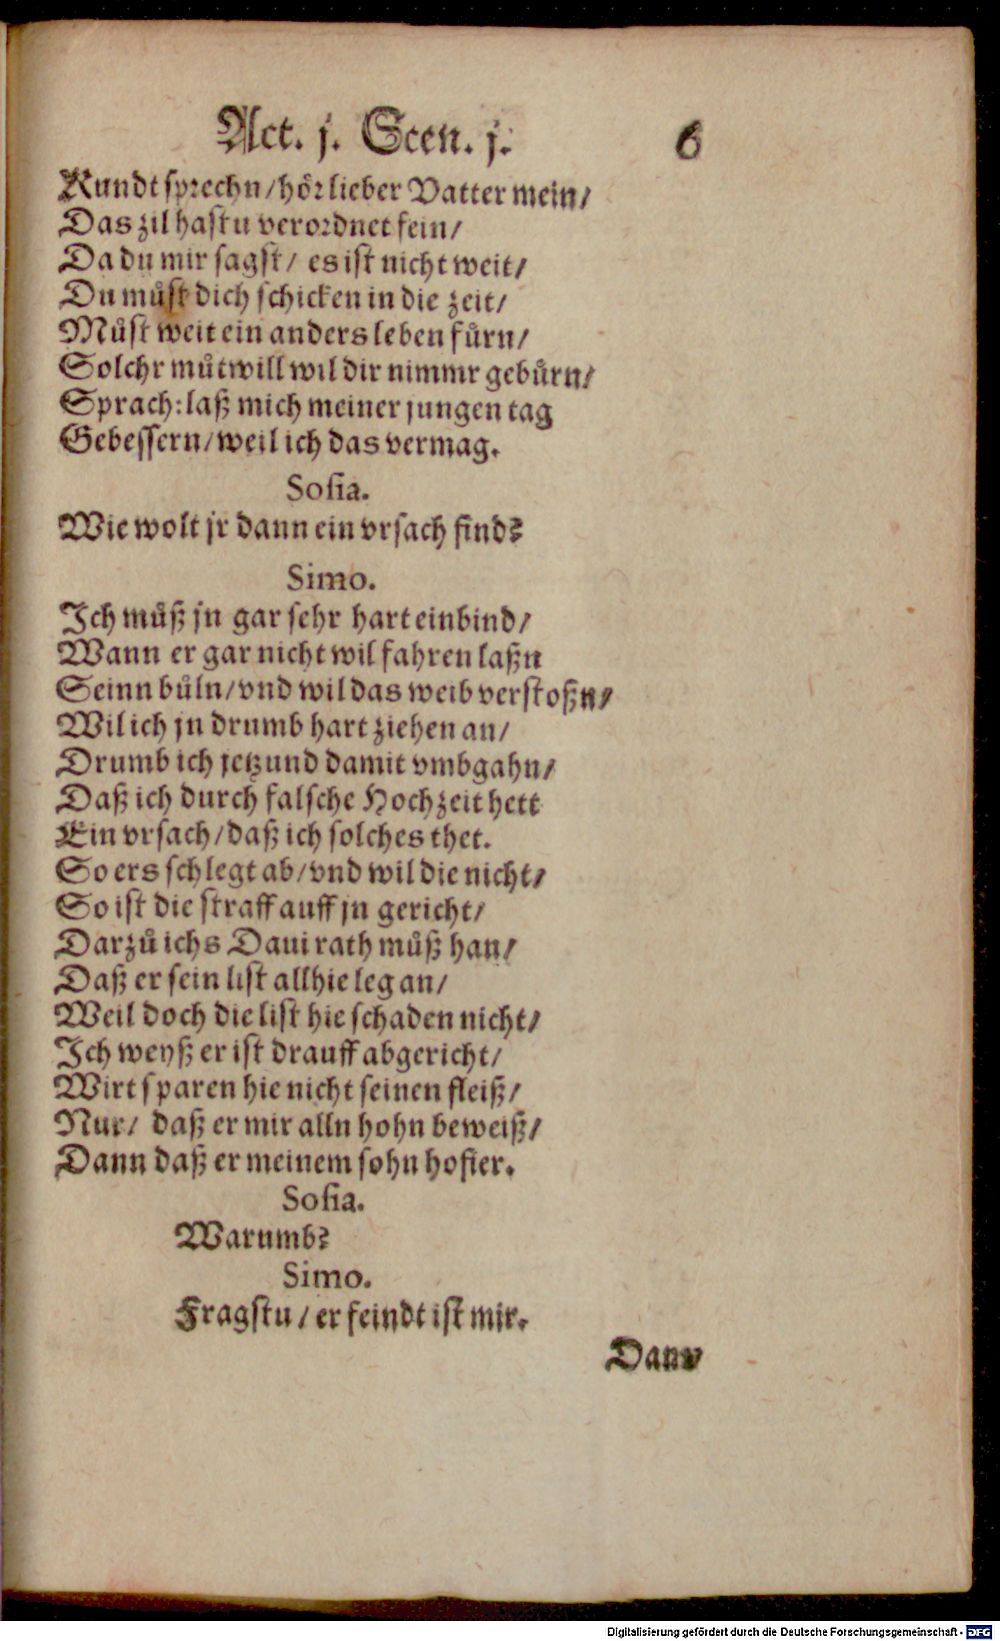 Act. j. Scen. j. 6
Kundt sprechn / hör lieber Vatter mein /
Das zil hastu verordnet fein /
Da du mir sagst / es ist nicht weit /
Du můst dich schicken in die zeit /
Můst weit ein anders leben fůrn /
Solchr můtwill wil dir nimmr gebůrn /
Sprach: laß mich meiner jungen tag
Gebessern / weil ich das vermag.
Sosia.
Wie wolt jr dann ein vrsach find?
Simo.
Ich můß jn gar sehr hart einbind /
Wann er gar nicht wil fahren laßn
Seinn bůln / vnd wil das weib verstoßn /
Wil ich jn drumb hart ziehen an /
Drumb ich jetzund damit vmbgahn /
Daß ich durch falsche Hochzeit hett
Ein vrsach / daß ich solches thet.
So ers schlegt ab / vnd wil die nicht /
So ist die straff auff jn gericht /
Darzů ichs Daui rath můß han /
Daß er sein list allhie leg an /
Weil doch die list hie schaden nicht /
Ich weyß er ist drauff abgericht /
Wirt sparen hie nicht seinen fleiß /
Nur / daß er mir alln hohn beweiß /
Dann daß er meinem sohn hofier.
Sosia.
Warumb?
Simo.
Fragstu / er feindt ist mir.
Dann
Digitalisierung gefördert durch die Deutsche Forschungsgemeinschaft - DFG